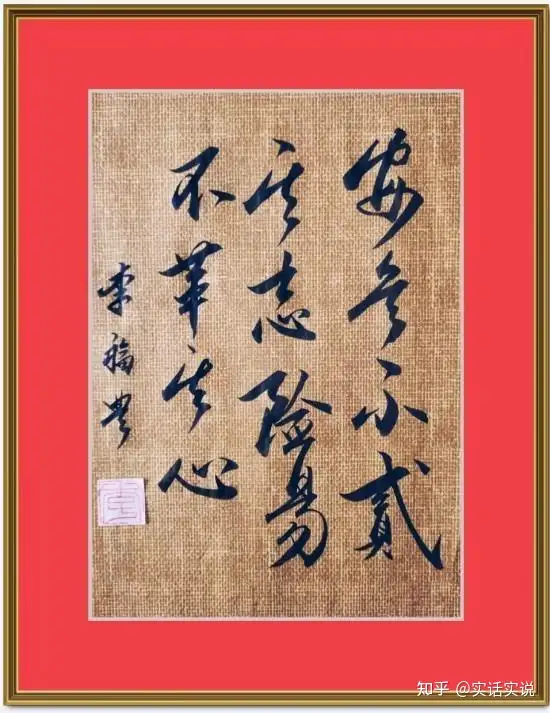 安危不貳
其志险易
不革其心
李福
知乎 @实话实说